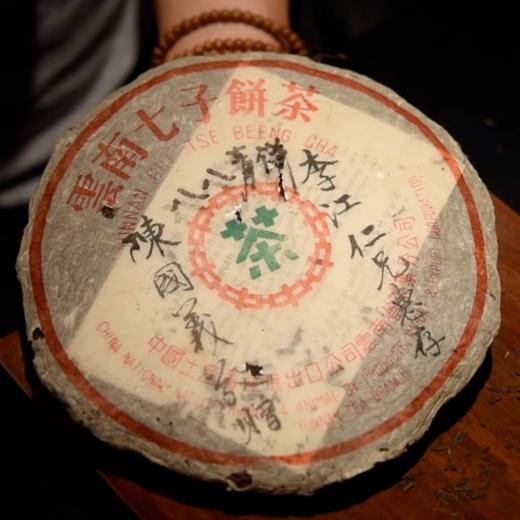 雲南七子餅茶
YUNNAN CHI TSE BEENG CHA
八八青餅
李江仁兄惠存
茶
陳國義
贈
中國土產畜產進出口公司雲南省茶葉分公司
CHINA NATIONAL NATIVE PRODUCE & ANIMAL BY-PRODUCTS
YUNNAN TEA BRANCH